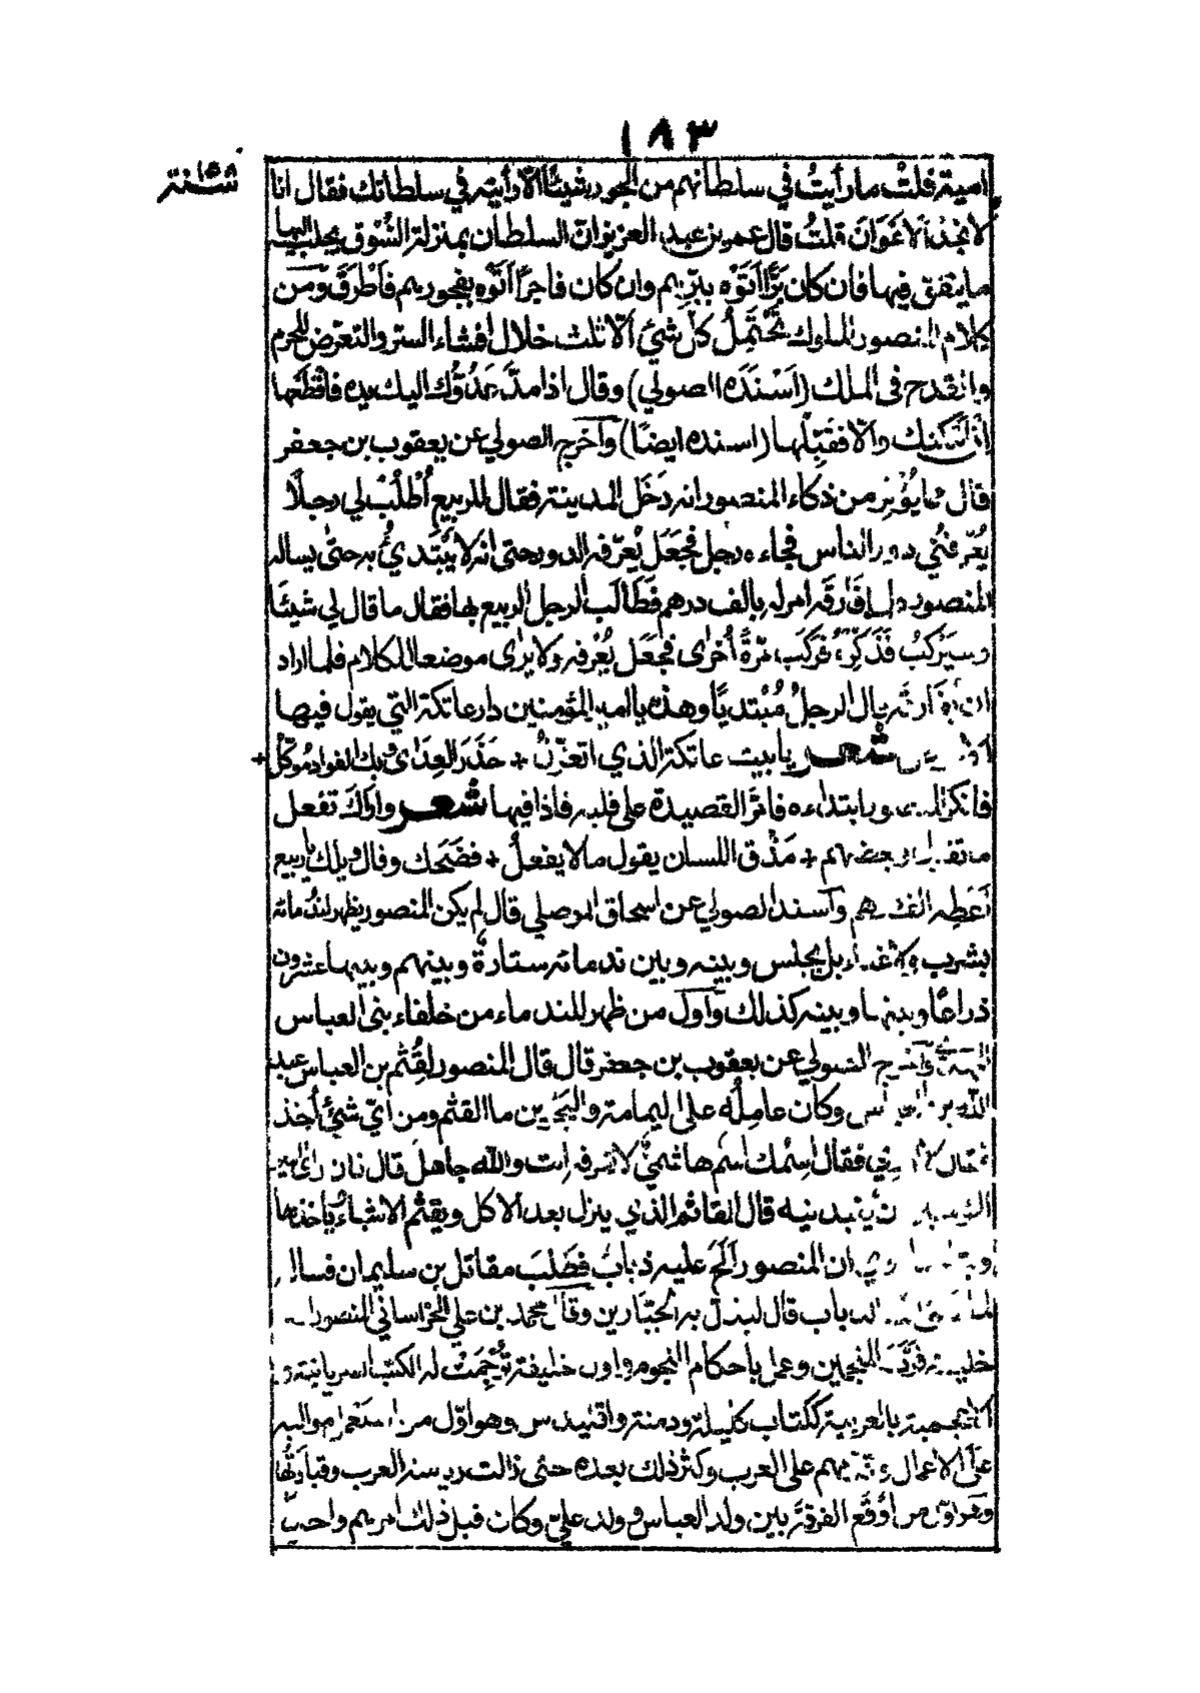 ١٨٣
امية قلتُ ما رأيتُ في سلطانهم من الجور شيئًا الّا رأيته في سلطانك فقال انا
لا نجد الاعوان قلتُ قال عمر بن عبد العزيز ان السلطان بمنزلة السُّوق يجلب اليها
ما ينفق فيها فان كان بَرًّا اَتَوْه ببرّهم وان كان فاجرًا اَتَوْه بفجورهم فَاَطْرَقَ وَمن
كلام المنصور الملوك تَحْتَمِلُ كل شيئ الّا ثلث خلال افشاء السر والتعرّض للحرم
والقدح فى الملك (اَسْنَدَه الصولي) وقال اذا مدَّ عَدُوُّك اليك يده فاقْطَعْها
اِن اَمْكَنَك والّا فقَبِّلْها (اسنده ايضًا) وآخرج الصولي عن يعقوب بن جعفر
قال مما يُؤثر من ذكاء المنصور انه دَخَل المدينة فقال للربيع اُطْلُبْ لي رجلًا
يُعَرِّفُني دور الناس فجاءه رجل فجَعَل يُعَرِّفه الدور حتى انه لا يَبْتَدِيُ به حتىٰ يساله
المنصور فلما فارَقَه امر له بالف درهم فَطَالَب الرجل الربيع بها فقال ما قال لي شيئًا
وسَيَرْكَبُ فَذَكِّرْه فرَكَب مَرّةً اُخرٰى فجَعَل يُعَرِّفه ولا يرٰى موضعا للكلام فلما اراد
ان يفارقه قال الرجلُ مُبْتَديًا وهذه يا امير المؤمنين دار عاتكة التي يقول فيها
شعر يا بيت عاتكة الذي اتعزّلُ + حَذَرَ العِدَاى وبك الفواد مُوَكّلُ +
فانكر المنصور ابتداءه فامَرَّ القصيدة على قلبه فاذا فيها شعر واراك تفعل
ما تقول وبعضهم + مَذْق اللسان يقول ما لا يفعلُ + فضَحَك وقال ويلك يا ربيع
اَعطِه الف درهم وآسند الصولي عن اسحاق الموصلي قال لم يكن المنصور يظهر لندمائه
بشرب ولا غناء بل يجلس وبينه وبين ندمائه ستارة وبينهم وبينها عشرون
ذراعًا وبينها وبينه كذلك وآول من ظهر للندماء من خلفاء بنى العباس
المهديُّ وآخرج الصولي عن يعقوب بن جعفر قال قال المنصور لقُثم بن العباس عبد
الله بن العباس وكان عامله على اليمامة والبحرين ما القثم ومن اَيّ شيئ اُخذ
فقال لا ادري فقال اِسْمك اسم هاشميٌّ لا تعرفه انت والله جاهل قال فان رأى امير
المؤمنين ان يفيدنيه قال القاثم الذي ينزل بعد الاكل ويقثم الاشياءَ ياخذها
ان المنصور اَلَحَّ عليه ذباب فطَلَبَ مقاتل بن سليمان فسال
الذباب قال ليذل به الجبّارين وقال محمد بن علي الخراساني المنصور
خليفة قرّب المنجمين وعمل باحكام النجوم واول خليفة تُرْجِمَتْ له الكتب السريانية و
الاعجمية بالعربية ككتاب كليلة ودمنة واقليدس وهو اوّل من استعمل مواليه
على الاعمال وقدّمهم على العرب وكثر ذلك بعده حتى زالت رياسة العرب وقيادتُها
وهو اوّل من اَوْقَعَ الفرقة بين ولد العباس وولد عليّ وكان قبل ذلك امرهم واحدًا